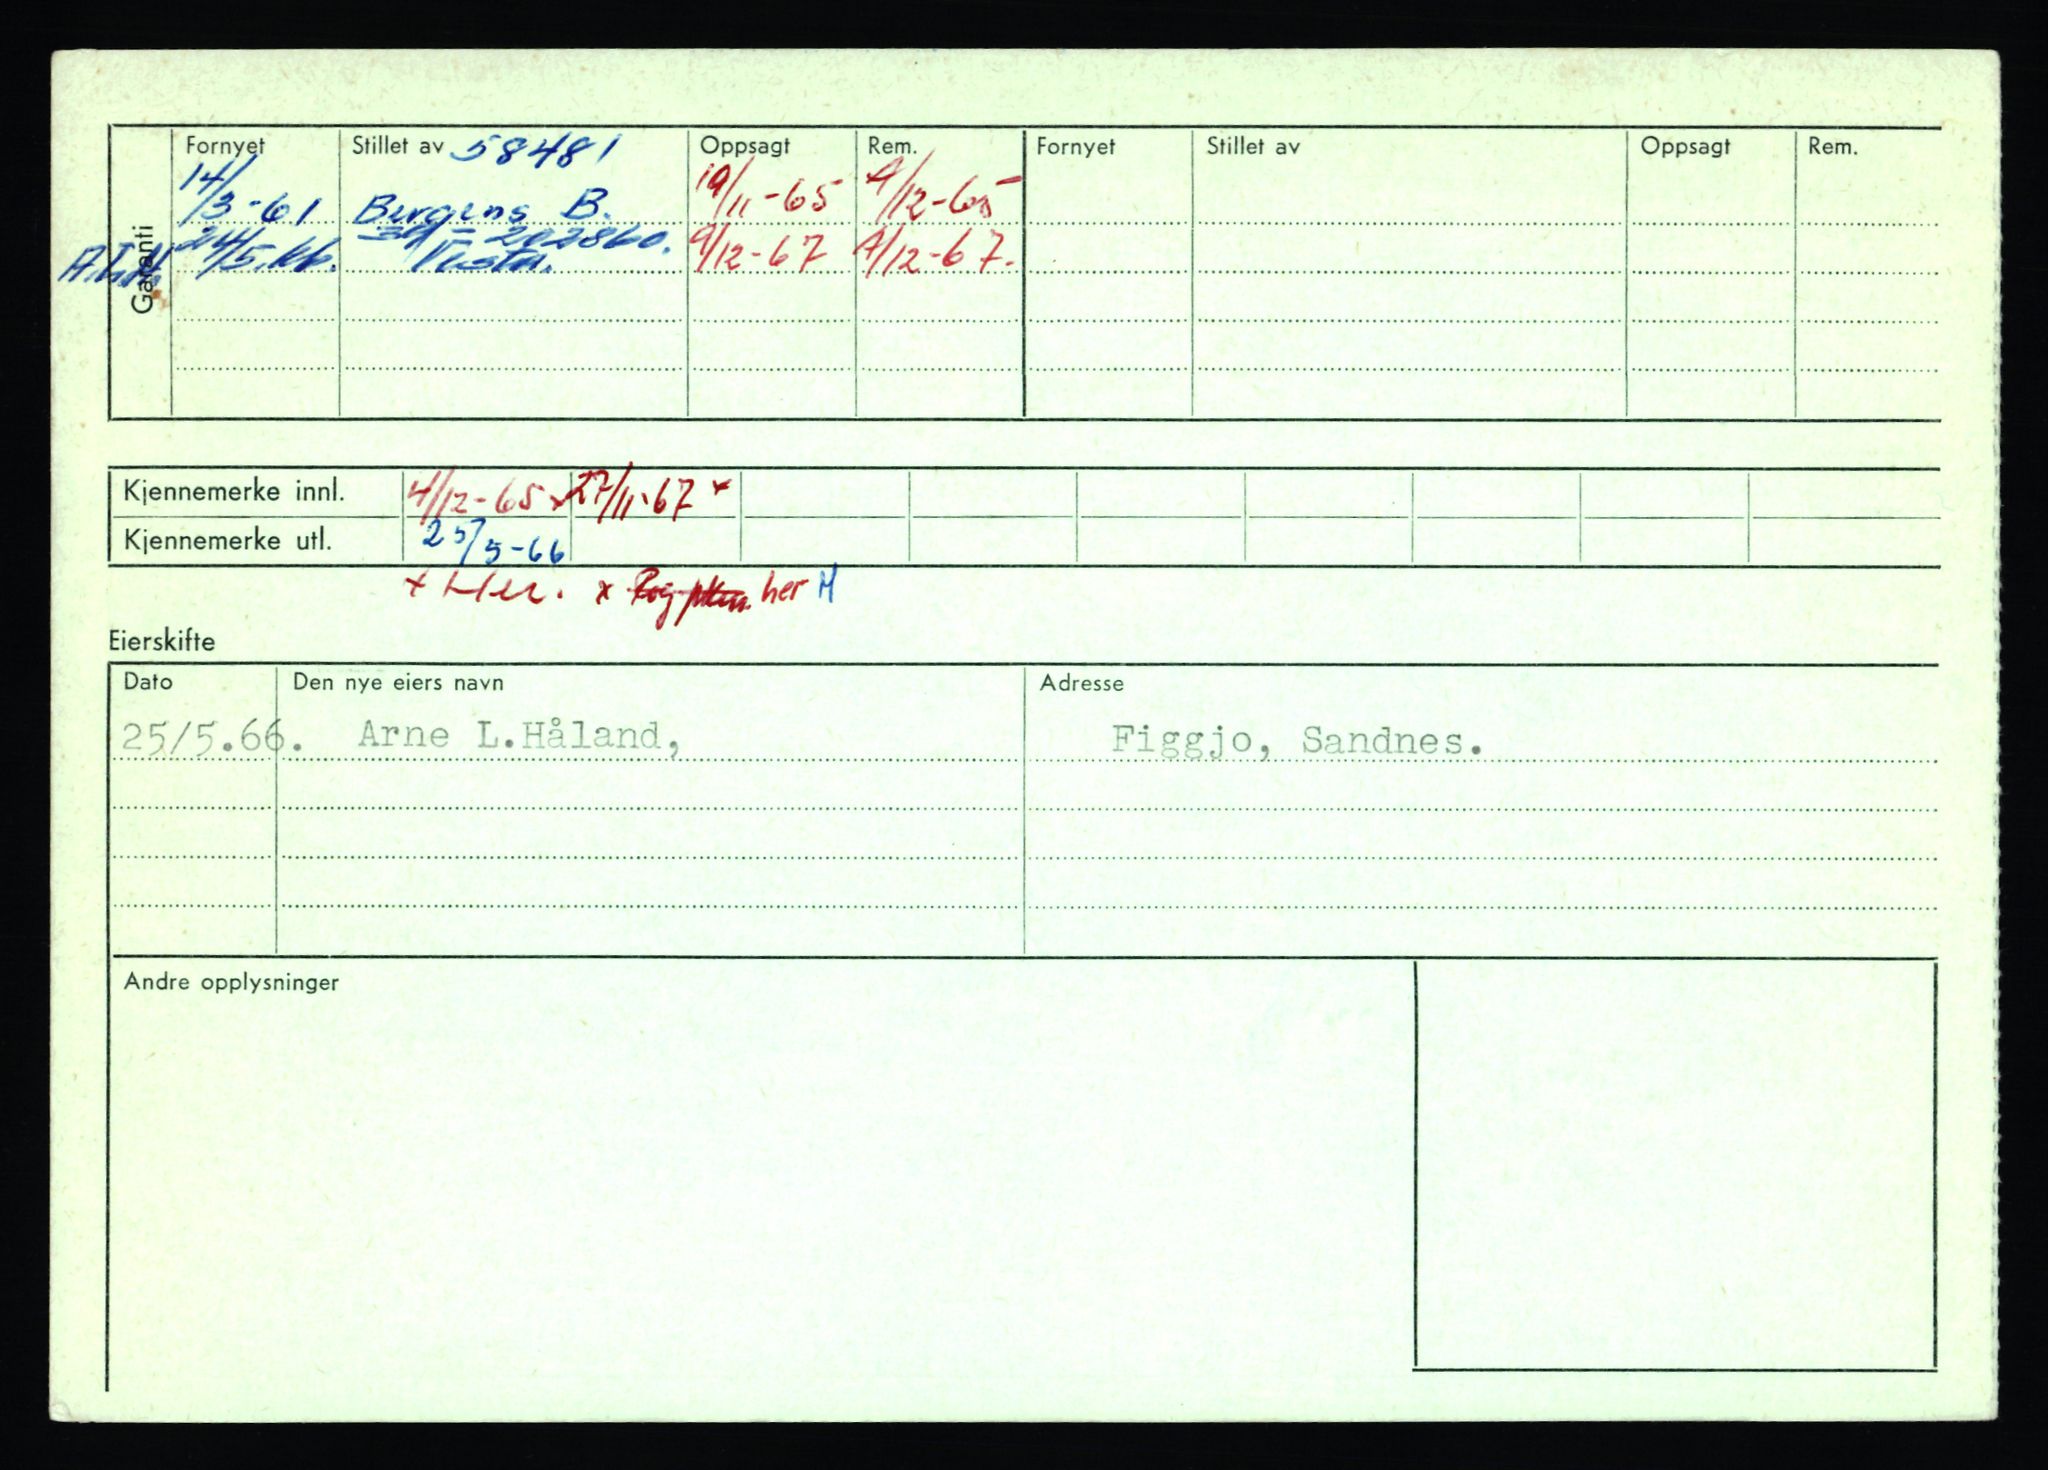 Garanti
Fornyet Stillet av 58481 Oppsagt Rem. Fornyet Stillet av Oppsagt Rem.
14/3-61 Bergens B. 19/11-65 4/12-65
202860.
A.L.H. 24/5.66. Vesta. 9/12-67 9/12-67.
Kjennemerke innl. 4/12-65 x 27/11-67 x
Kjennemerke utl. 25/5-66
x Her. x her H
Eierskifte
Dato Den nye eiers navn Adresse
25/5.66. Arne L.Håland, Figgjo, Sandnes.
Andre opplysninger